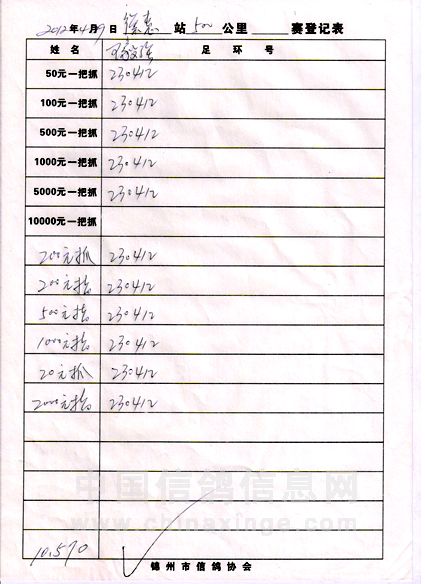 2012年4月9日 站 500 公里 赛登记表
姓名 足环号
50元一把抓 230412
100元一把抓 230412
500元一把抓 230412
1000元一把抓 230412
5000元一把抓 230412
10000元一把抓
200元抓 230412
200元指 230412
500元指 230412
1000元指 230412
20元抓 230412
2000元指 230412
中国信鸽信息网
www.chinaxinge.com
10.570
锦州市信鸽协会